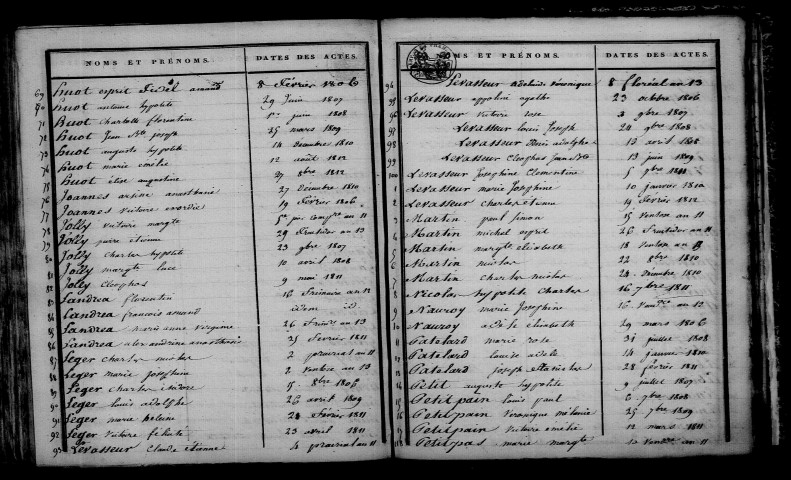 NOMS ET PRÉNOMS. DATES DES ACTES.
69 huot esprit fidel amand 8 Février 1806
70 huot antoine hypolite 29 Juin 1807
71 huot Charlotte florentine 1er juin 1808
72 huot Jean Bte Joseph 25 mars 1809
73 huot auguste hypolite 18 Décembre 1810
74 huot marie emelie 12 août 1812
75 huot elise augustine 27 8bre 1812
76 Joannes arsène anasthasie 27 Décembre 1810
77 Joannes victoire 19 Février 1806
78 Jolly victoire margte 5e jour compre an 11
79 Jolly pierre etienne 29 Fructidor an 13
80 Jolly Charles hypolite 23 9bre 1807
81 Jolly margte luce 10 avril 1808
82 Jolly Cleophas 9 mai 1811
83 Landrea florentin 16 Frimaire an 12
84 Landrea francois amand idem
85 Landrea marie anne 26 an 13
86 Landrea alexandrine anasthasie 25 Février 1811
87 Leger charles nicolas 2 prairial an 11
88 Leger marie josephine 2 Ventose an 13
89 Leger charles isidore 15 8bre 1806
90 Leger louis adolphe 26 avril 1809
91 Leger marie heleine 28 Février 1811
92 Leger victoire félicité 23 avril 1811
93 Levasseur claude etienne 4 prairial an 11
NOMS ET PRÉNOMS. DATES DES ACTES.
94 Levasseur adelaide véronique 8 floréal an 13
95 Levasseur appoline agathe 23 octobre 1806
96 Levasseur victoire rose 2 9bre 1807
97 Levasseur louis Joseph 24 9bre 1808
98 Levasseur adolphe 13 avril 1808
99 Levasseur Cleophas Jean Bte 13 juin 1809
100 Levasseur Josephine Clementine 5 9bre 1811
1 Levasseur marie Josephine 10 janvier 1810
2 Levasseur charles etienne 14 Février 1812
3 Martin paul simon 15 Ventose an 11
4 Martin michel esprit 26 Fructidor an 11
5 Martin margte elisabeth 18 Ventose an 13
6 Martin nicolas 22 8bre 1810
7 Martin charles nicolas 24 Décembre 1810
8 Nicolas hypolite charles 16 7bre 1811
9 Nauroy marie Josephine 16 Vendre an 12
10 Nauroy adele elisabeth 29 mars 1806
11 Patelard marie rose 31 juillet 1808
12 Patelard louise adele 14 janvier 1810
13 Patelard joseph stanislas 28 février 1811
14 Petit auguste hypolite 9 juillet 1807
15 Petitpain louis paul 6 9bre 1808
16 Petitpain Veronique mélanie 25 7bre 1809
17 Petitpain victoire emelie 12 mars 1811
18 Petitpas marie margte 12 Vendre an 11